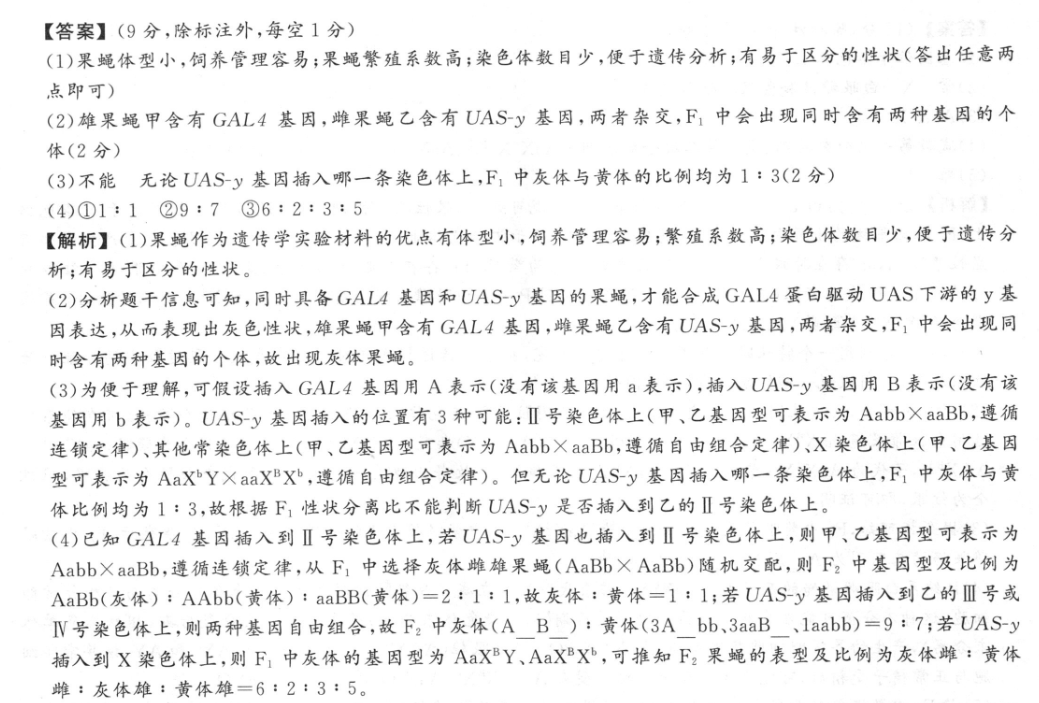 【答案】(9分,除标注外,每空1分)
(1)果蝇体型小,饲养管理容易;果蝇繁殖系数高;染色体数目少,便于遗传分析;有易于区分的性状(答出任意两
点即可)
(2)雄果蝇甲含有 GAL4 基因,雌果蝇乙含有 UAS-y 基因,两者杂交,F₁ 中会出现同时含有两种基因的个
体(2分)
(3)不能 无论 UAS-y 基因插入哪一条染色体上,F₁ 中灰体与黄体的比例均为 1∶3(2分)
(4)①1∶1 ②9∶7 ③6∶2∶3∶5
【解析】(1)果蝇作为遗传学实验材料的优点有体型小,饲养管理容易;繁殖系数高;染色体数目少,便于遗传分
析;有易于区分的性状。
(2)分析题干信息可知,同时具备 GAL4 基因和 UAS-y 基因的果蝇,才能合成 GAL4 蛋白驱动 UAS 下游的 y 基
因表达,从而表现出灰色性状,雄果蝇甲含有 GAL4 基因,雌果蝇乙含有 UAS-y 基因,两者杂交,F₁ 中会出现同
时含有两种基因的个体,故出现灰体果蝇。
(3)为便于理解,可假设插入 GAL4 基因用 A 表示(没有该基因用 a 表示),插入 UAS-y 基因用 B 表示(没有该
基因用 b 表示)。UAS-y 基因插入的位置有 3 种可能:Ⅱ号染色体上(甲、乙基因型可表示为 Aabb×aaBb,遵循
连锁定律)、其他常染色体上(甲、乙基因型可表示为 Aabb×aaBb,遵循自由组合定律)、X 染色体上(甲、乙基因
型可表示为 AaXᵇY×aaXᴮXᵇ,遵循自由组合定律)。但无论 UAS-y 基因插入哪一条染色体上,F₁ 中灰体与黄
体比例均为 1∶3,故根据 F₁ 性状分离比不能判断 UAS-y 是否插入到乙的Ⅱ号染色体上。
(4)已知 GAL4 基因插入到Ⅱ号染色体上,若 UAS-y 基因也插入到Ⅱ号染色体上,则甲、乙基因型可表示为
Aabb×aaBb,遵循连锁定律,从 F₁ 中选择灰体雌雄果蝇(AaBb×AaBb)随机交配,则 F₂ 中基因型及比例为
AaBb(灰体)∶AAbb(黄体)∶aaBB(黄体)=2∶1∶1,故灰体∶黄体=1∶1;若 UAS-y 基因插入到乙的Ⅲ号或
Ⅳ号染色体上,则两种基因自由组合,故 F₂ 中灰体(A__B__)∶黄体(3A__bb、3aaB__、1aabb)=9∶7;若 UAS-y
插入到 X 染色体上,则 F₁ 中灰体的基因型为 AaXᴮY、AaXᴮXᵇ,可推知 F₂ 果蝇的表型及比例为灰体雌∶黄体
雌∶灰体雄∶黄体雄=6∶2∶3∶5。